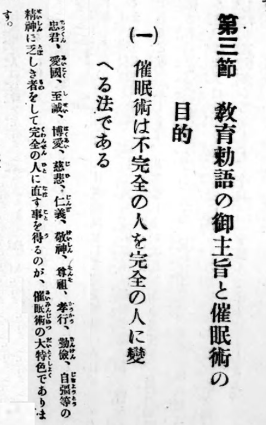 第三節　教育勅語の御主旨と催眠術の
目的
(一)　催眠術は不完全の人を完全の人に變
へる法である
忠君、愛國、至誠、博愛、慈悲、仁義、敬神、尊祖、孝行、勤儉、自張等の
精神に乏しき者をして完全の人に直す事を得るのが、催眠術の大特色でありま
す。